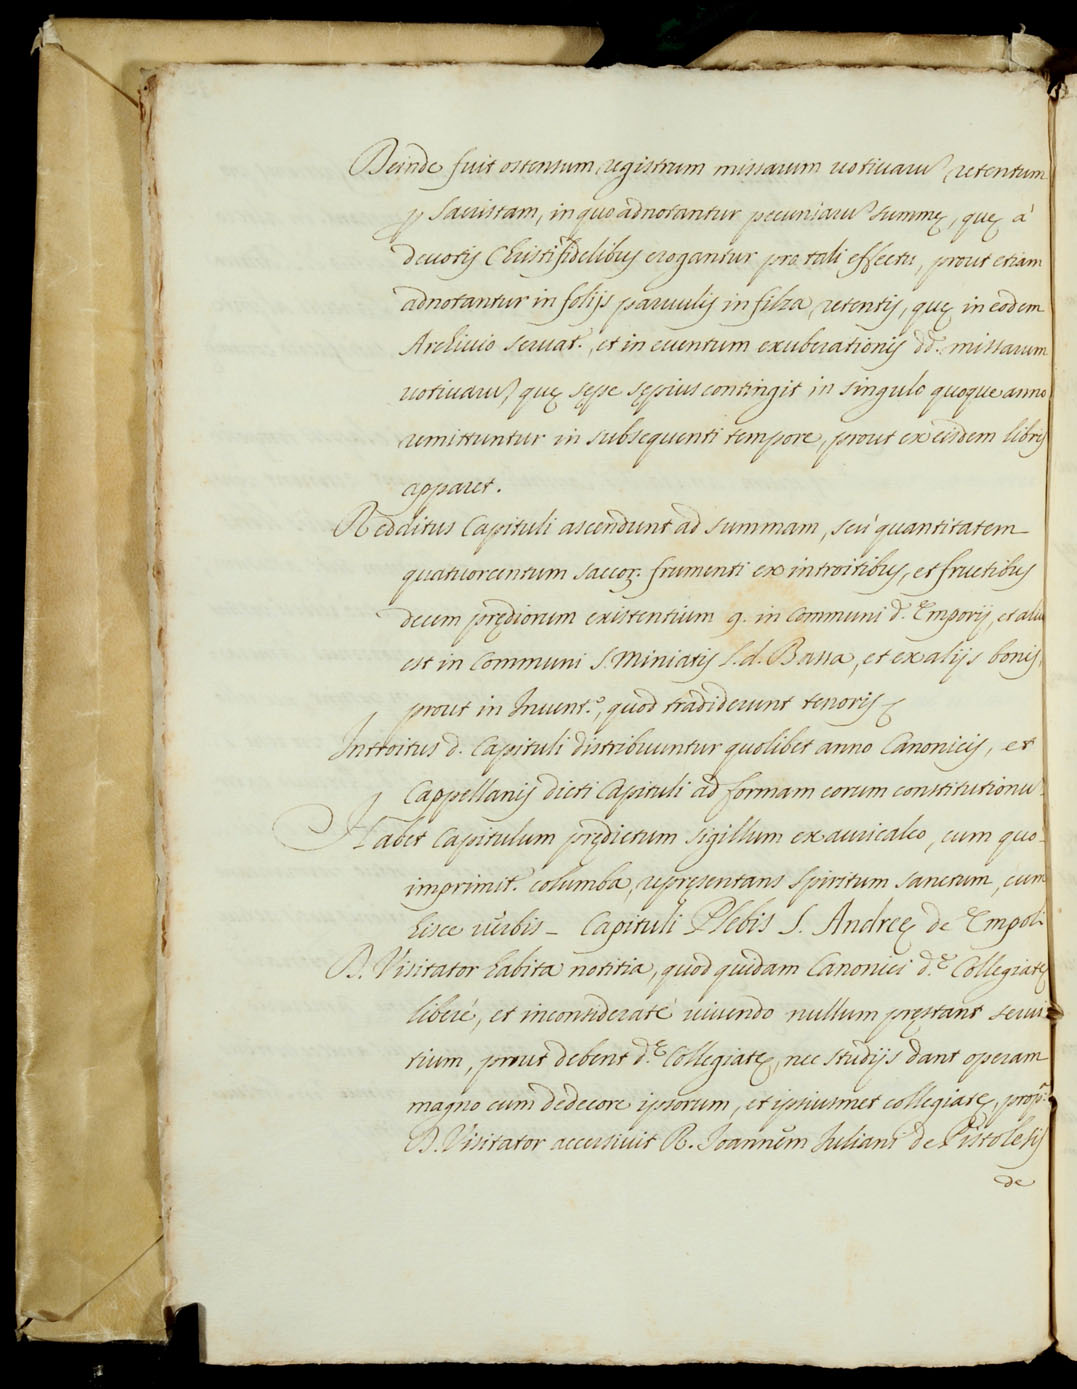 Deinde fuit ostensum registrum missarum uotiuarũ retentum
p Sacristam, in quo adnotantur pecuniarũ summę, quę à
deuotis Christifidelibus erogantur pro tali effectu, prout etiam
adnotantur in folijs paruulis in filza retentis, quę in eodem
Archiuio seruat.r, et in euentum exuberationis dd. missarum
uotiuarũ, quę sępe sępius contingit in singulo quoque anno
remittuntur in subsequenti tempore, prout ex eisdem libris
apparet.
Redditus Capituli ascendunt ad summam, seù quantitatem
quatuorcentum saccor. frumenti ex introitibus, et fructibus
decem prędiorum existentium 9. in Communi d.ę Emporij, et aliu
est in Communi S. Miniatis S.d. Bassa, et ex alijs bonis,
prout in Inuent.o, quod tradiderunt tenoris
Introitus d. Capituli distribuuntur quolibet anno Canonicis, et
Cappellanis dicti Capituli ad formam eorum constitutionũ.
Habet Capitulum prędictum sigillum ex auricalco, cum quo
imprimit.r columba, repręsentans Spiritum Sanctum, cum
hisce uerbis – Capituli Plebis S. Andreę de Empoli
D. Visitator habita notitia, quod quidam Canonici d.ę Collegiatę
liberè, et inconsideratè uiuendo nullum pręstant serui
tium, prout debent d.ę Collegiatę, nec studijs dant operam
magno cum dedecore ipsorum, et ipsiusmet collegiatę, prop.a
D. Visitator accersiuit R. Joannem Juliani de Pistolesis
de